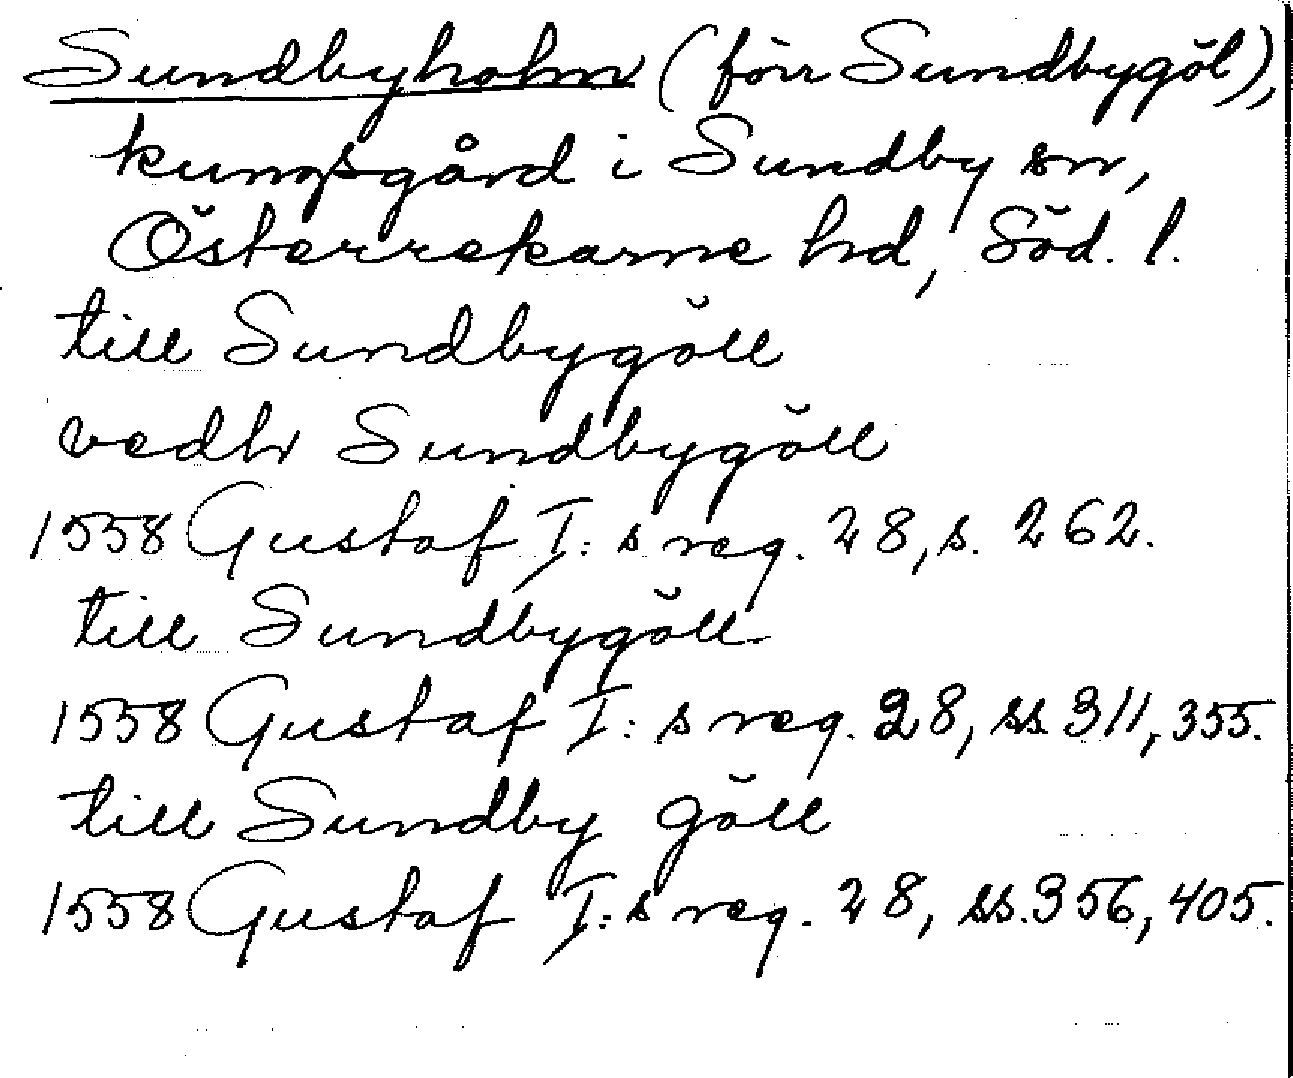 Sundbyholm (förr Sundbygöl),
kungsgård i Sundby sn,
Österrekarne hd, Söd. l.
till Sundbygöll
vedh Sundbygöll
1558 Gustaf I:s reg. 28, s. 262.
till Sundbygöll
1558 Gustaf I:s reg. 28, ss. 311, 355.
till Sundby göll
1558 Gustaf I:s reg. 28, ss. 356, 405.